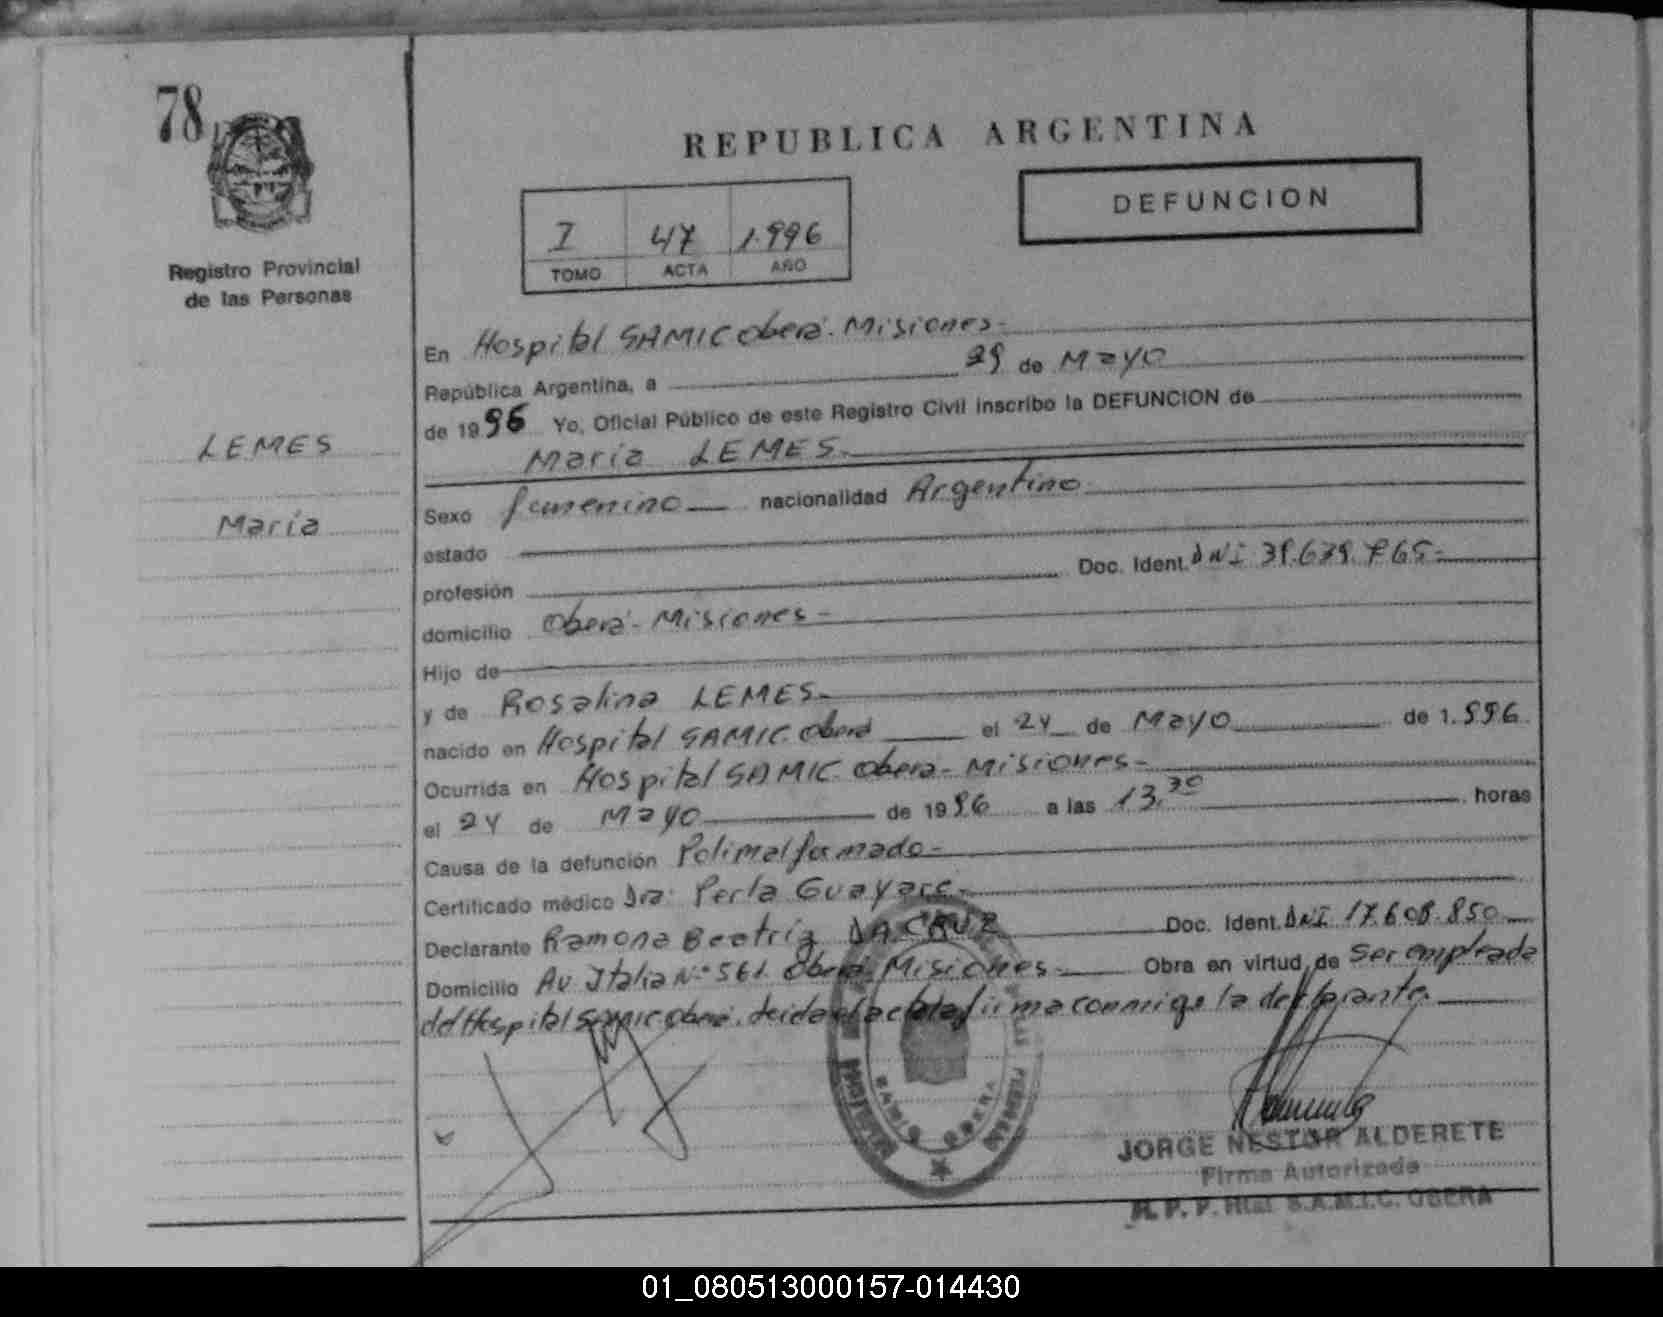 78
REPUBLICA ARGENTINA
DEFUNCION
I 47 1.996
TOMO ACTA AÑO
Registro Provincial
de las Personas
LEMES
María
En Hospital SAMIC Oberá. Misiones-
República Argentina, a 29 de Mayo
de 1996 Yo, Oficial Público de este Registro Civil inscribo la DEFUNCION de
María LEMES.
Sexo femenino nacionalidad Argentino
estado
profesión Doc. Ident. DNI
domicilio Oberá- Misiones-
Hijo de
y de Rosalina LEMES-
nacido en Hospital SAMIC Oberá el 24 de Mayo de 1.996
Ocurrida en Hospital SAMIC Oberá- Misiones-
el 24 de Mayo de 1996 a las 13,30 horas
Causa de la defunción Polimalformado-
Certificado médico Dra. Perla
Declarante Ramona Beatriz DA CRUZ Doc. Ident. DNI 17.608.850
Domicilio Av Italia Nº 561. Oberá- Misiones Obra en virtud de ser empleada
del Hospital SAMIC Oberá. leida el acta la firma conmigo la declarante.
OBERA
JORGE NESTOR ALDERETE
Firma Autorizada
R. P. P. Htal. S.A.M.I.C. OBERA
01_080513000157-014430